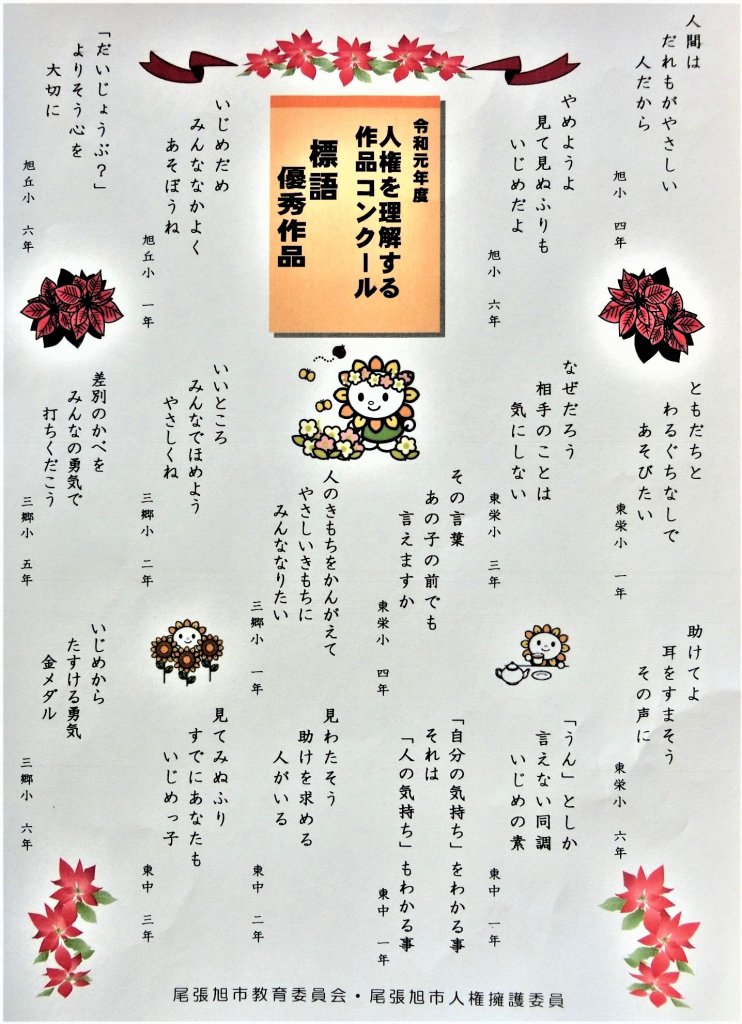 令和元年度
人権を理解する
作品コンクール
標語
優秀作品
人間は
だれもがやさしい
人だから
旭小 四年
やめようよ
見て見ぬふりも
いじめだよ
旭小 六年
いじめだめ
みんななかよく
あそぼうね
旭丘小 一年
「だいじょうぶ？」
よりそう心を
大切に
旭丘小 六年
ともだちと
わるぐちなしで
あそびたい
東栄小 一年
なぜだろう
相手のことは
気にしない
東栄小 三年
その言葉
あの子の前でも
言えますか
東栄小 四年
人のきもちをかんがえて
やさしいきもちに
みんななりたい
三郷小 一年
いいところ
みんなでほめよう
やさしくね
三郷小 二年
差別のかべを
みんなの勇気で
打ちくだこう
三郷小 五年
助けてよ
耳をすまそう
その声に
東栄小 六年
「うん」としか
言えない同調
いじめの素
東中 一年
「自分の気持ち」をわかる事
それは
「人の気持ち」もわかる事
東中 一年
見わたそう
助けを求める
人がいる
東中 二年
見てみぬふり
すでにあなたも
いじめっ子
東中 三年
いじめから
たすける勇気
金メダル
三郷小 六年
尾張旭市教育委員会・尾張旭市人権擁護委員